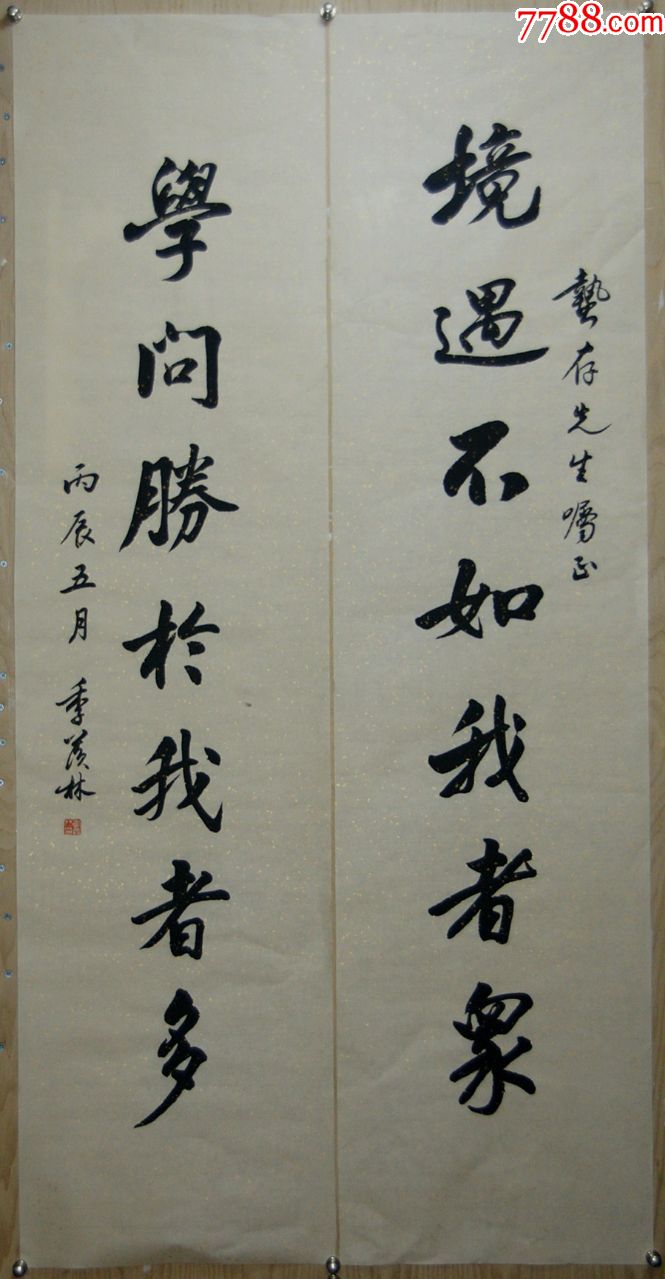 7788.com
藝存先生嘱正
境遇不如我者眾
學問勝於我者多
丙辰五月 季羨林